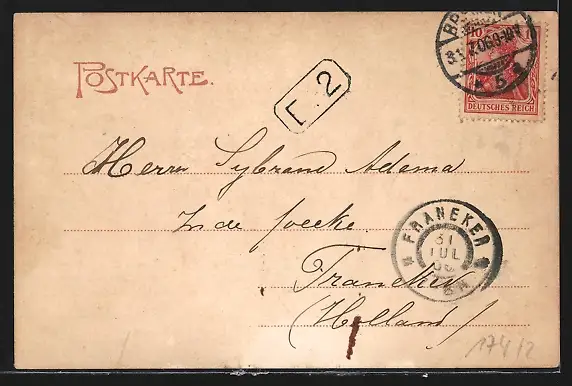 POSTKARTE.
10
DEUTSCHES REICH
31.7.06.9-10V
* 5
F. 2
Herrn Sybrand Adema
In de foeke.
FRANEKER
31
JUL
06
Franeker
(Holland)
1
174/2